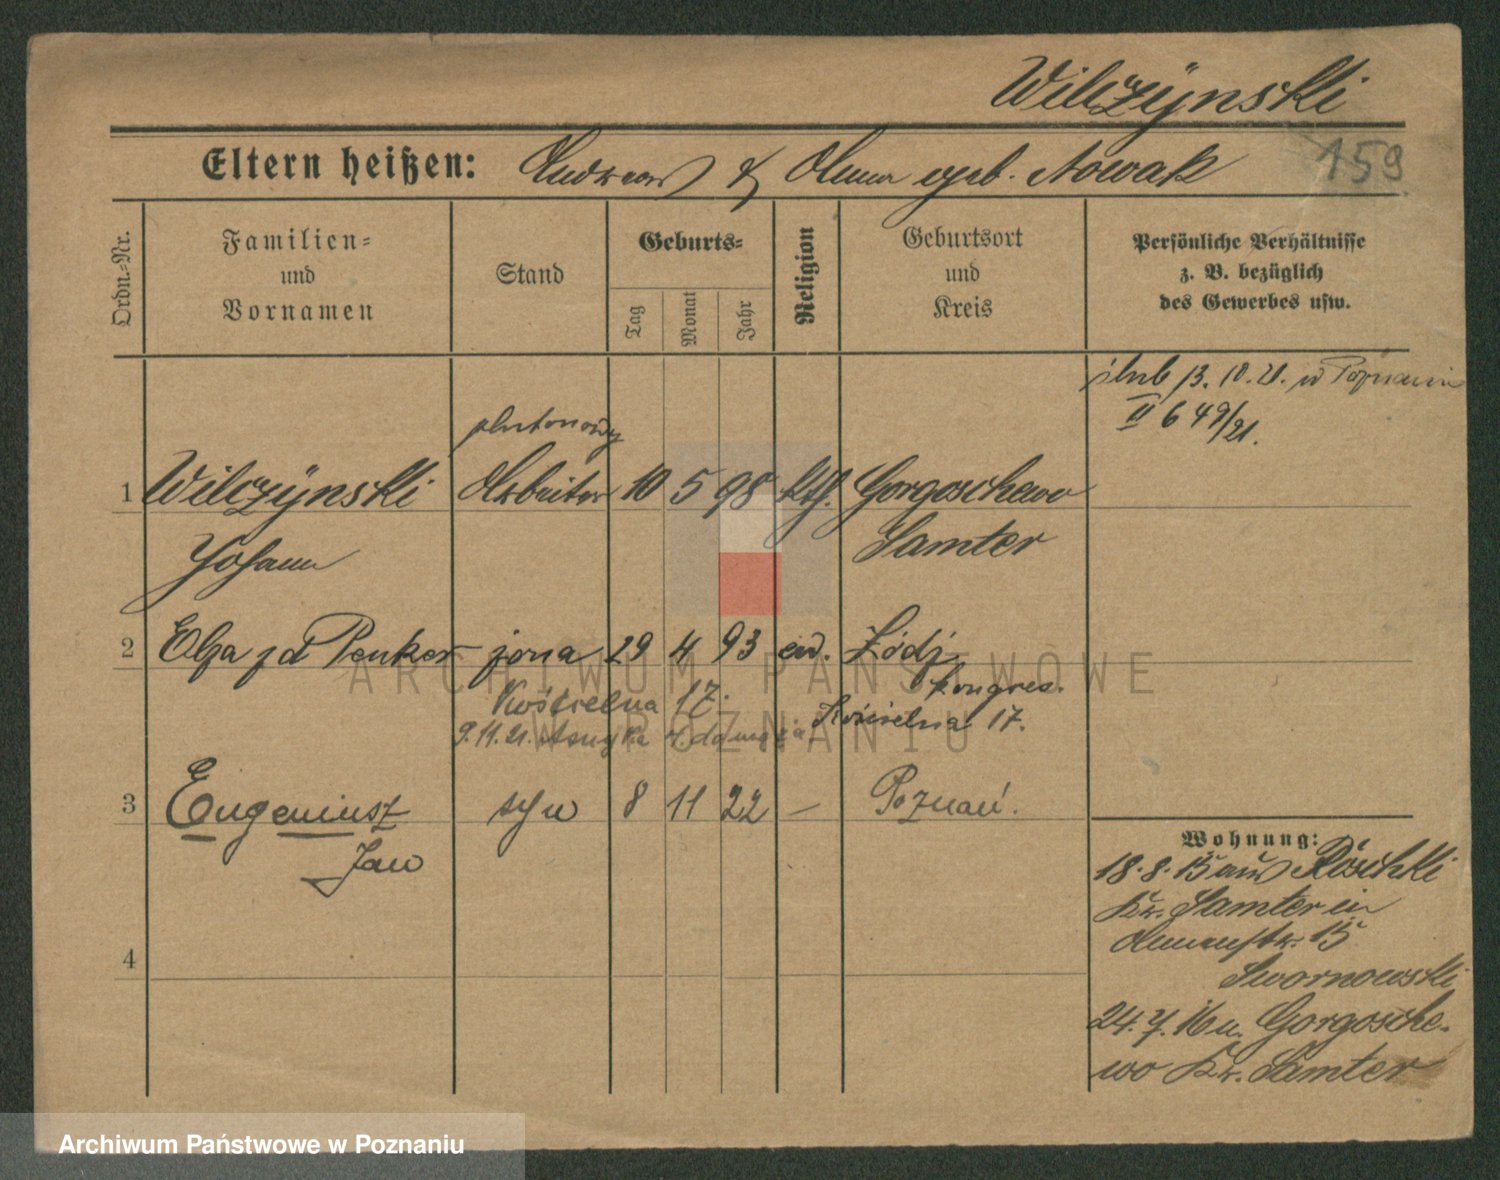 Wilczÿnski
159
Eltern heißen: Andreas & Anna geb. Nowak
Ordn.-Nr.
Familien-
und
Vornamen
Stand
Geburts-
Tag
Monat
Jahr
Religion
Geburtsort
und
Kreis
Persönliche Verhältnisse
z. B. bezüglich
des Gewerbes usw.
ślub 13.10.21. w Poznaniu
II 649/21.
plutonowy
1 Wilczÿnski Arbeiter 10 5 98 kth. Gorgoschewo
Johann Samter
2 Olga zd Penker żona 29 4 93 ew. Łódź
kongres.
Kościelna 17.
Kościelna 17.
9.11.21.
3 Eugeniusz syn 8 11 22 — Poznań.
Jan
4
Wohnung:
18.8.15 aus
Kr. Samter in
Annenstr. 15
Swornowski
24.7.16 n. Gorgosche-
wo Kr. Samter
ARCHIWUM PAŃSTWOWE
W POZNANIU
Archiwum Państwowe w Poznaniu